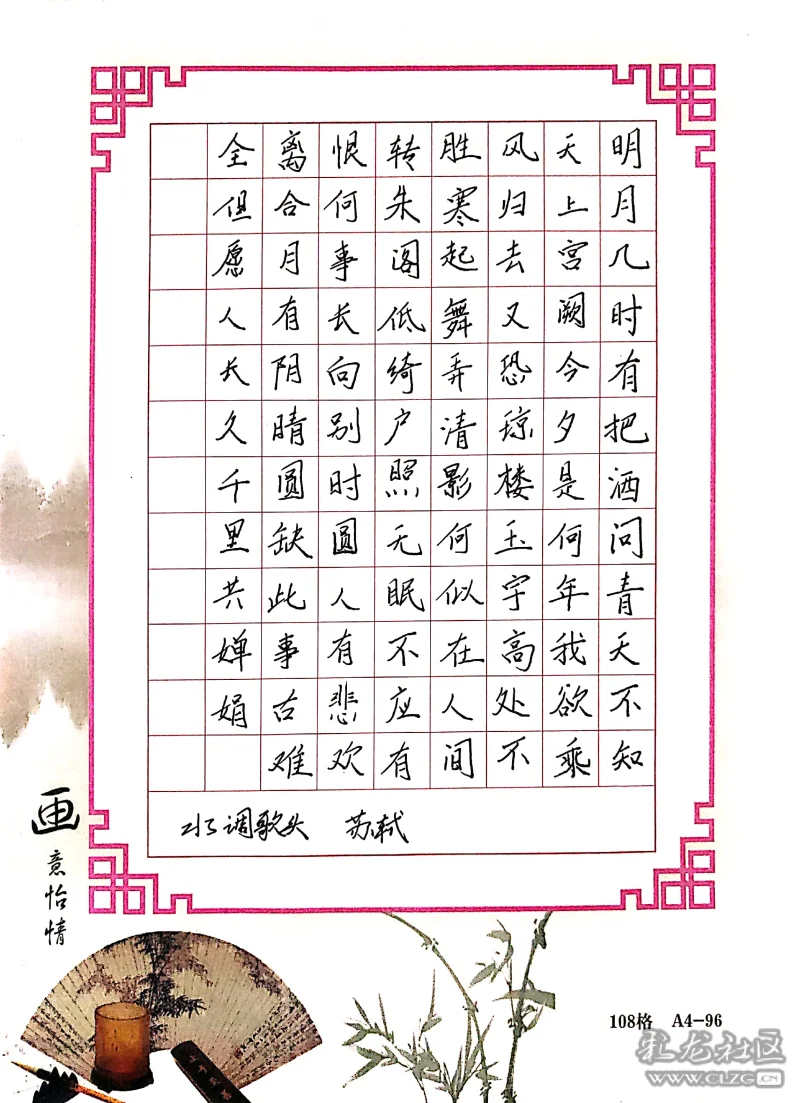 明月几时有把酒问青天不知
天上宫阙今夕是何年我欲乘
风归去又恐琼楼玉宇高处不
胜寒起舞弄清影何似在人间
转朱阁低绮户照无眠不应有
恨何事长向别时圆人有悲欢
离合月有阴晴圆缺此事古难
全但愿人长久千里共婵娟
水调歌头 苏轼
画意怡情
108格 A4-96
彩龙社区
WWW.CLZG.CN